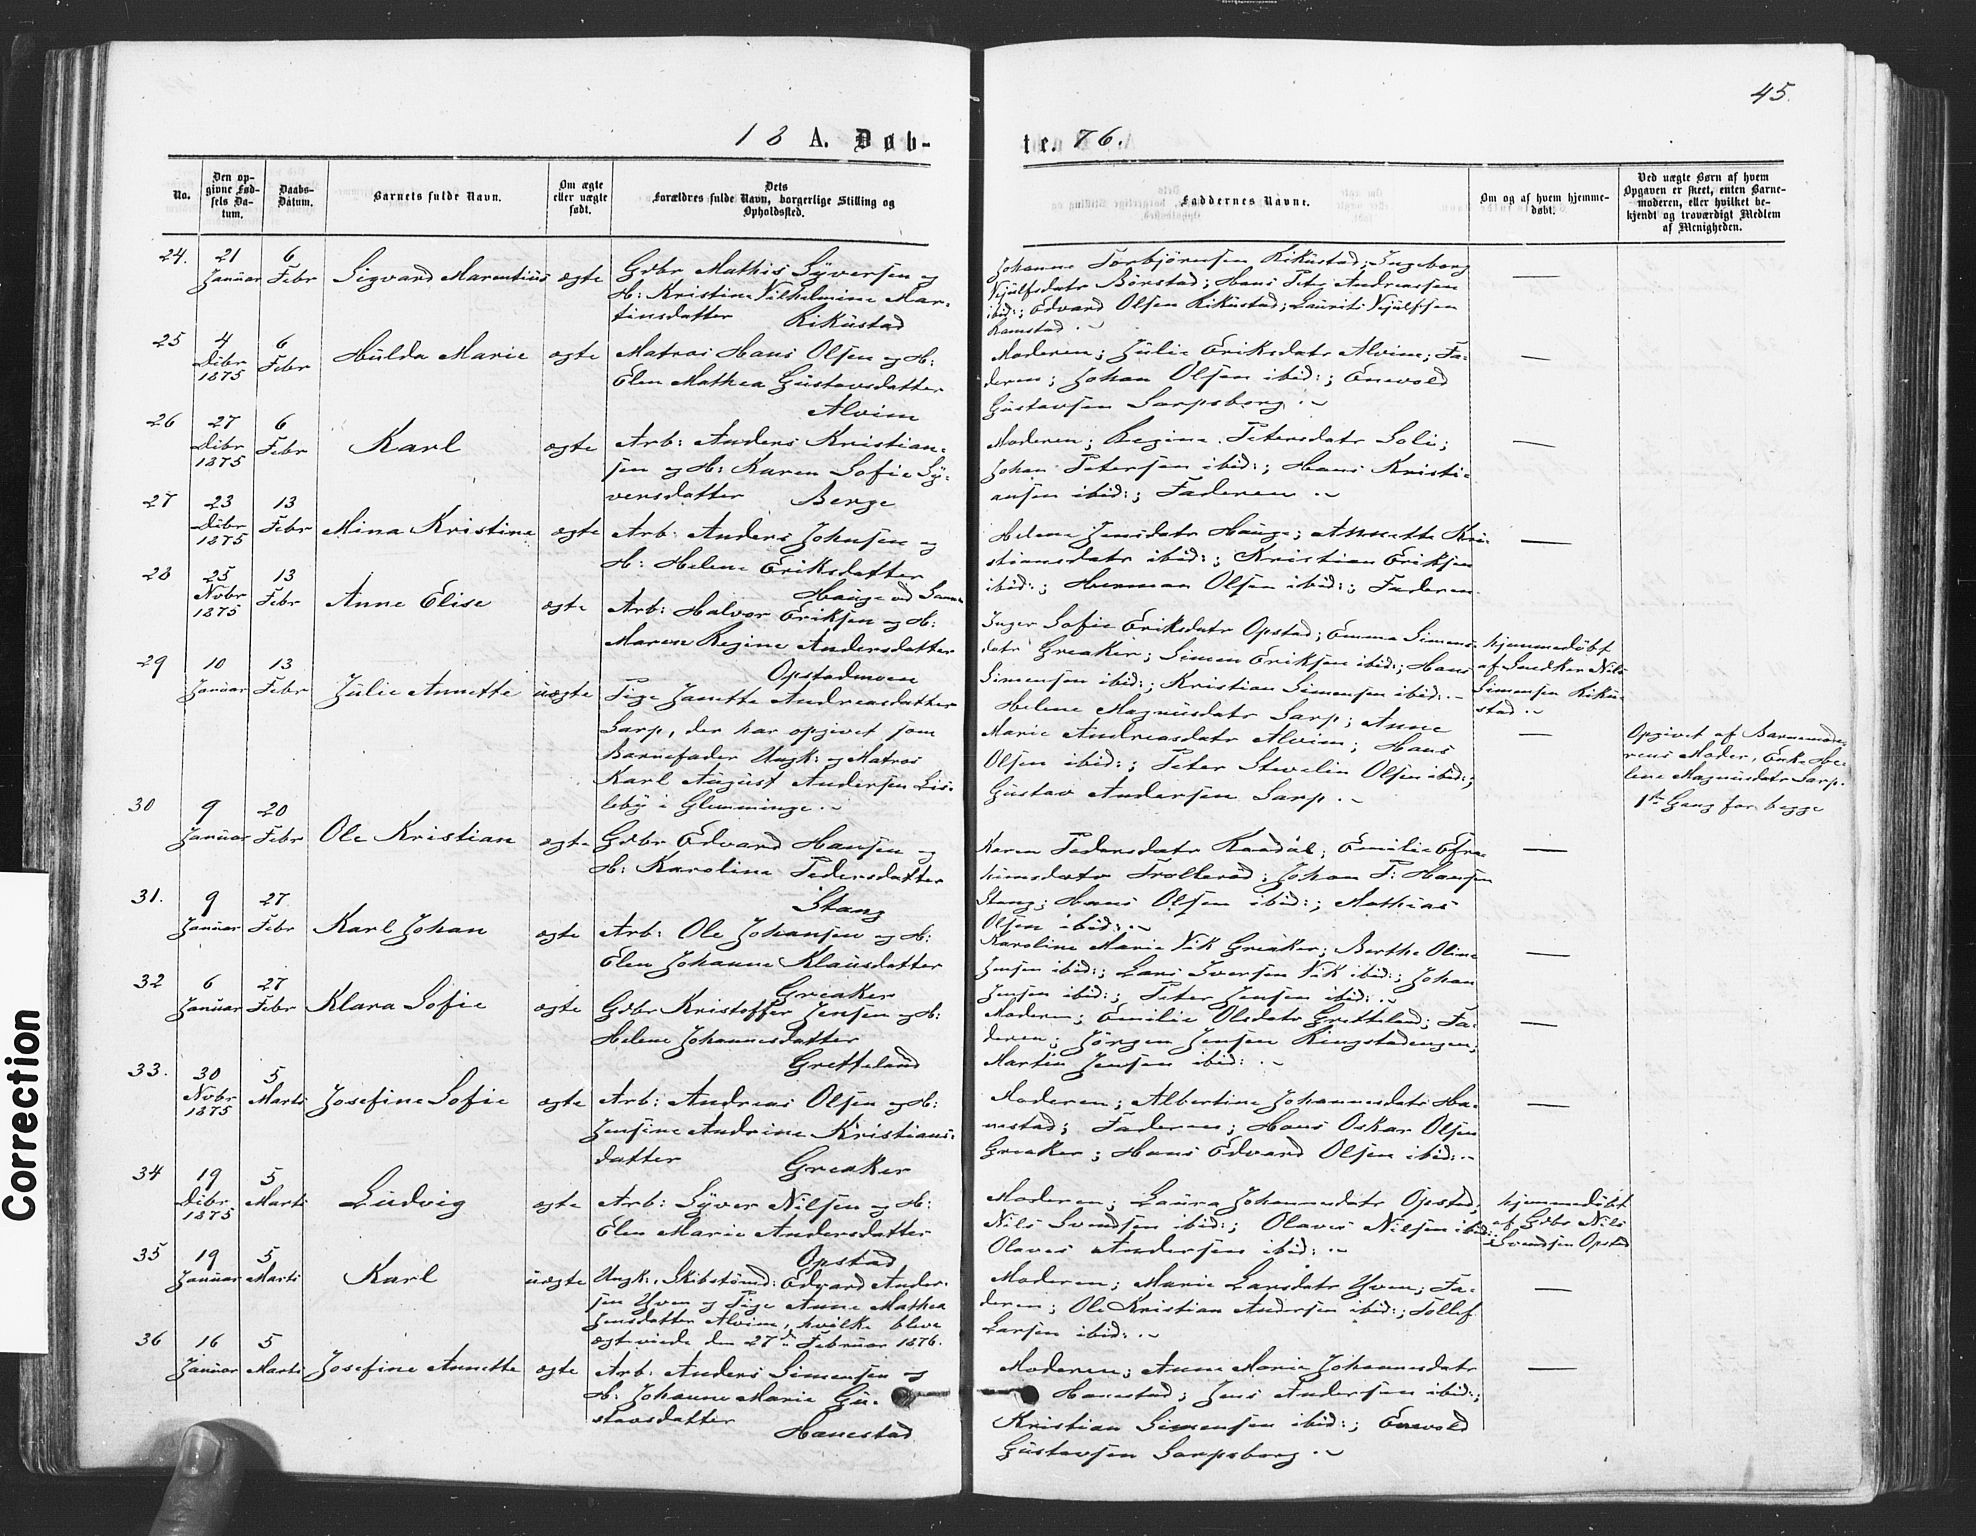 45.
18 A. Døb-
te. 76.
No.
Den op-
givne Fød-
sels Da-
tum.
Daabs-
Datum.
Barnets fulde Navn.
Om ægte
eller uægte
født.
Dets
Forældres fulde Navn, borgerlige Stilling og
Opholdssted.
Faddernes Navne.
Om og af hvem hjemme-
døbt.
Ved uægte Børn af hvem
Opgaven er skeet, enten Barne-
moderen, eller hvilket be-
kjendt og troværdigt Medlem
af Menigheden.
24. 21 Januar 6 Febr Sigvard Marentius ægte
Gdbr Mathis Syversen og
H: Kristine Vilhelmine Mar-
tinsdatter Kikustad
Johanne Torbjörnsen Kikustad; Ingeborg
Vejulfsdatr Börstad; Hans Peter Andreassen
ibid:; Edvard Olsen Kikustad; Laurits Vejulfsen
Ramstad .~
—
25 4 Dcbr 1875 6 Febr Hulda Marie ægte
Matros Hans Olsen og H:
Elen Mathea Gustavsdatter
Alvim
Moderen; Julie Eriksdatr Alvim; Fa-
deren; Johan Olsen ibid:; Enevold
Gustavsen Sarpsborg .~
—
26 27 Dcbr 1875 6 Febr Karl ægte
Arb: Anders Kristian-
sen og H: Karen Sofie Sy-
versdatter Berge
Moderen; Regine Petersdatr Soli;
Johan Petersen ibid:; Hans Kristi-
ansen ibid:; Faderen .~
—
27 23 Dcbr 1875 13 Febr Mina Kristine ægte
Arb: Anders Johnsen og
H: Helene Eriksdatter
Hauge ved
Helene Jensdatr Hauge; Annette Kri-
stiansdatr ibid:; Kristian Eriksen
ibid:; Herman Olsen ibid:; Faderen
—
28 25 Novbr 1875 13 Febr Anne Elise ægte
Arb: Halvor Eriksen og H:
Maren Regine Andersdatter
Opstadmoen
Inger Sofie Eriksdatr Opstad; Emma Simens-
datr Greaker; Simen Eriksen ibid:; Hans
Simensen ibid:; Kristian Simensen ibid: .~
hjemmedöbt
af Snedker Nils
Simensen Kiku-
stad .~
29 10 Januar 13 Febr Julie Annette uægte
Pige Janette Andreasdatter
Sarp, der har opgivet som
Barnefader Ungk: og Matros
Karl August Andersen Lis-
leby i Glemminge .~
Helene Magnusdatr Sarp; Anne
Marie Andreasdatr Alvim; Hans
Olsen ibid:; Peter Stevelin Olsen ibid:;
Gustav Andersen Sarp .~
—
Opgivet af Barnemode-
rens Moder, Enke He-
lene Magnusdatr Sarp.
1ste Gang for begge
30 9 Januar 20 Febr Ole Kristian ægte
Gdbr Edvard Hansen og
H: Karoline Pedersdatter
Stang
Karen Pedersdatr Kaadal; Emilie Efra-
himsdatr Trolleröd; Johan P: Hansen
Stang; Hans Olsen ibid:; Mathias
Olsen ibid: .~
—
31. 9 Januar 27 Febr Karl Johan ægte
Arb: Ole Johansen og H:
Elen Johanne Klausdatter
Greaker
Karoline Marie Vik Greaker; Berthe Oline
Jensen ibid:; Lars Iversen Vik ibid:; Johan
Jensen ibid:; Peter Jensen ibid: .~
—
32 6 Januar 27 Febr Klara Sofie ægte
Gdbr Kristoffer Jensen og H:
Helene Johannesdatter
Gretteland
Moderen; Emilie Olsdatr Gretteland; Fa-
deren; Jörgen Jensen Ringstadengen;
Martin Jensen ibid: .~
—
33. 30 Novbr 1875 5 Marts Josefine Sofie ægte
Arb: Andreas Olsen og H:
Jensine Andrine Kristians-
datter Greaker
Moderen; Albertine Johannesdatr Ha-
nestad; Faderen; Hans Oskar Olsen
Greaker; Hans Edvard Olsen ibid: .~
—
34 19 Dcbr 1875 5 Marts Ludvig ægte
Arb: Syver Nilsen og H:
Elen Marie Andersdatter
Opstad
Moderen; Laura Johannesdatr Opstad;
Nils Svendsen ibid:; Olaves Nilsen ibid:;
Olaves Andersen ibid: .~
hjemmedöbt
af Gdbr Nils
Svendsen Opstad
35 19 Januar 5 Marts Karl uægte
Ungk: Skibstömd: Edvard Ander-
sen Yven og Pige Anne Mathea
Jensdatter Alvim, hvilke bleve
ægteviede den 27de Februar 1876.
Moderen; Marie Larsdatr Yven; Fa-
deren; Ole Kristian Andersen ibid:; Tollef
Larsen ibid: .~
—
36 16 Januar 5 Marts Josefine Annette ægte
Arb: Anders Simensen og
H: Johanne Marie Gu-
stavsdatter Hanestad
Moderen; Anne Marie Johannesdatr
Hanestad; Jens Andersen ibid:;
Kristian Simensen ibid:; Enevold
Gustavsen Sarpsborg .~
—
Correction